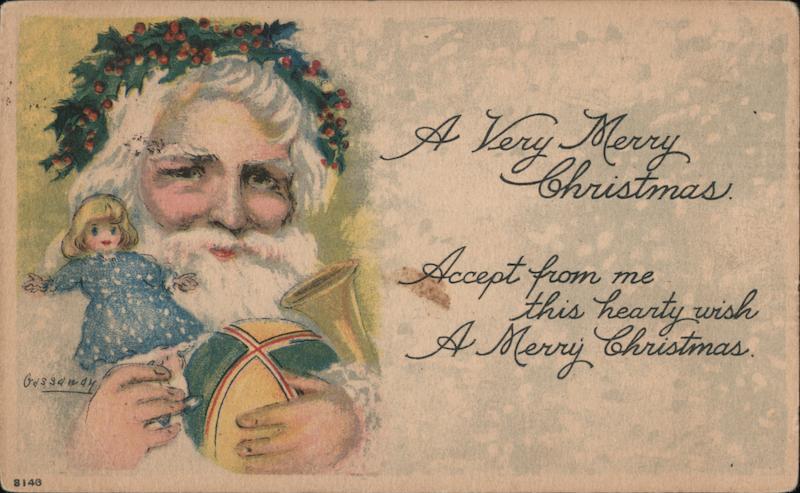 A Very Merry
Christmas.
Accept from me
this hearty wish
A Merry Christmas.
Cassandy
8146